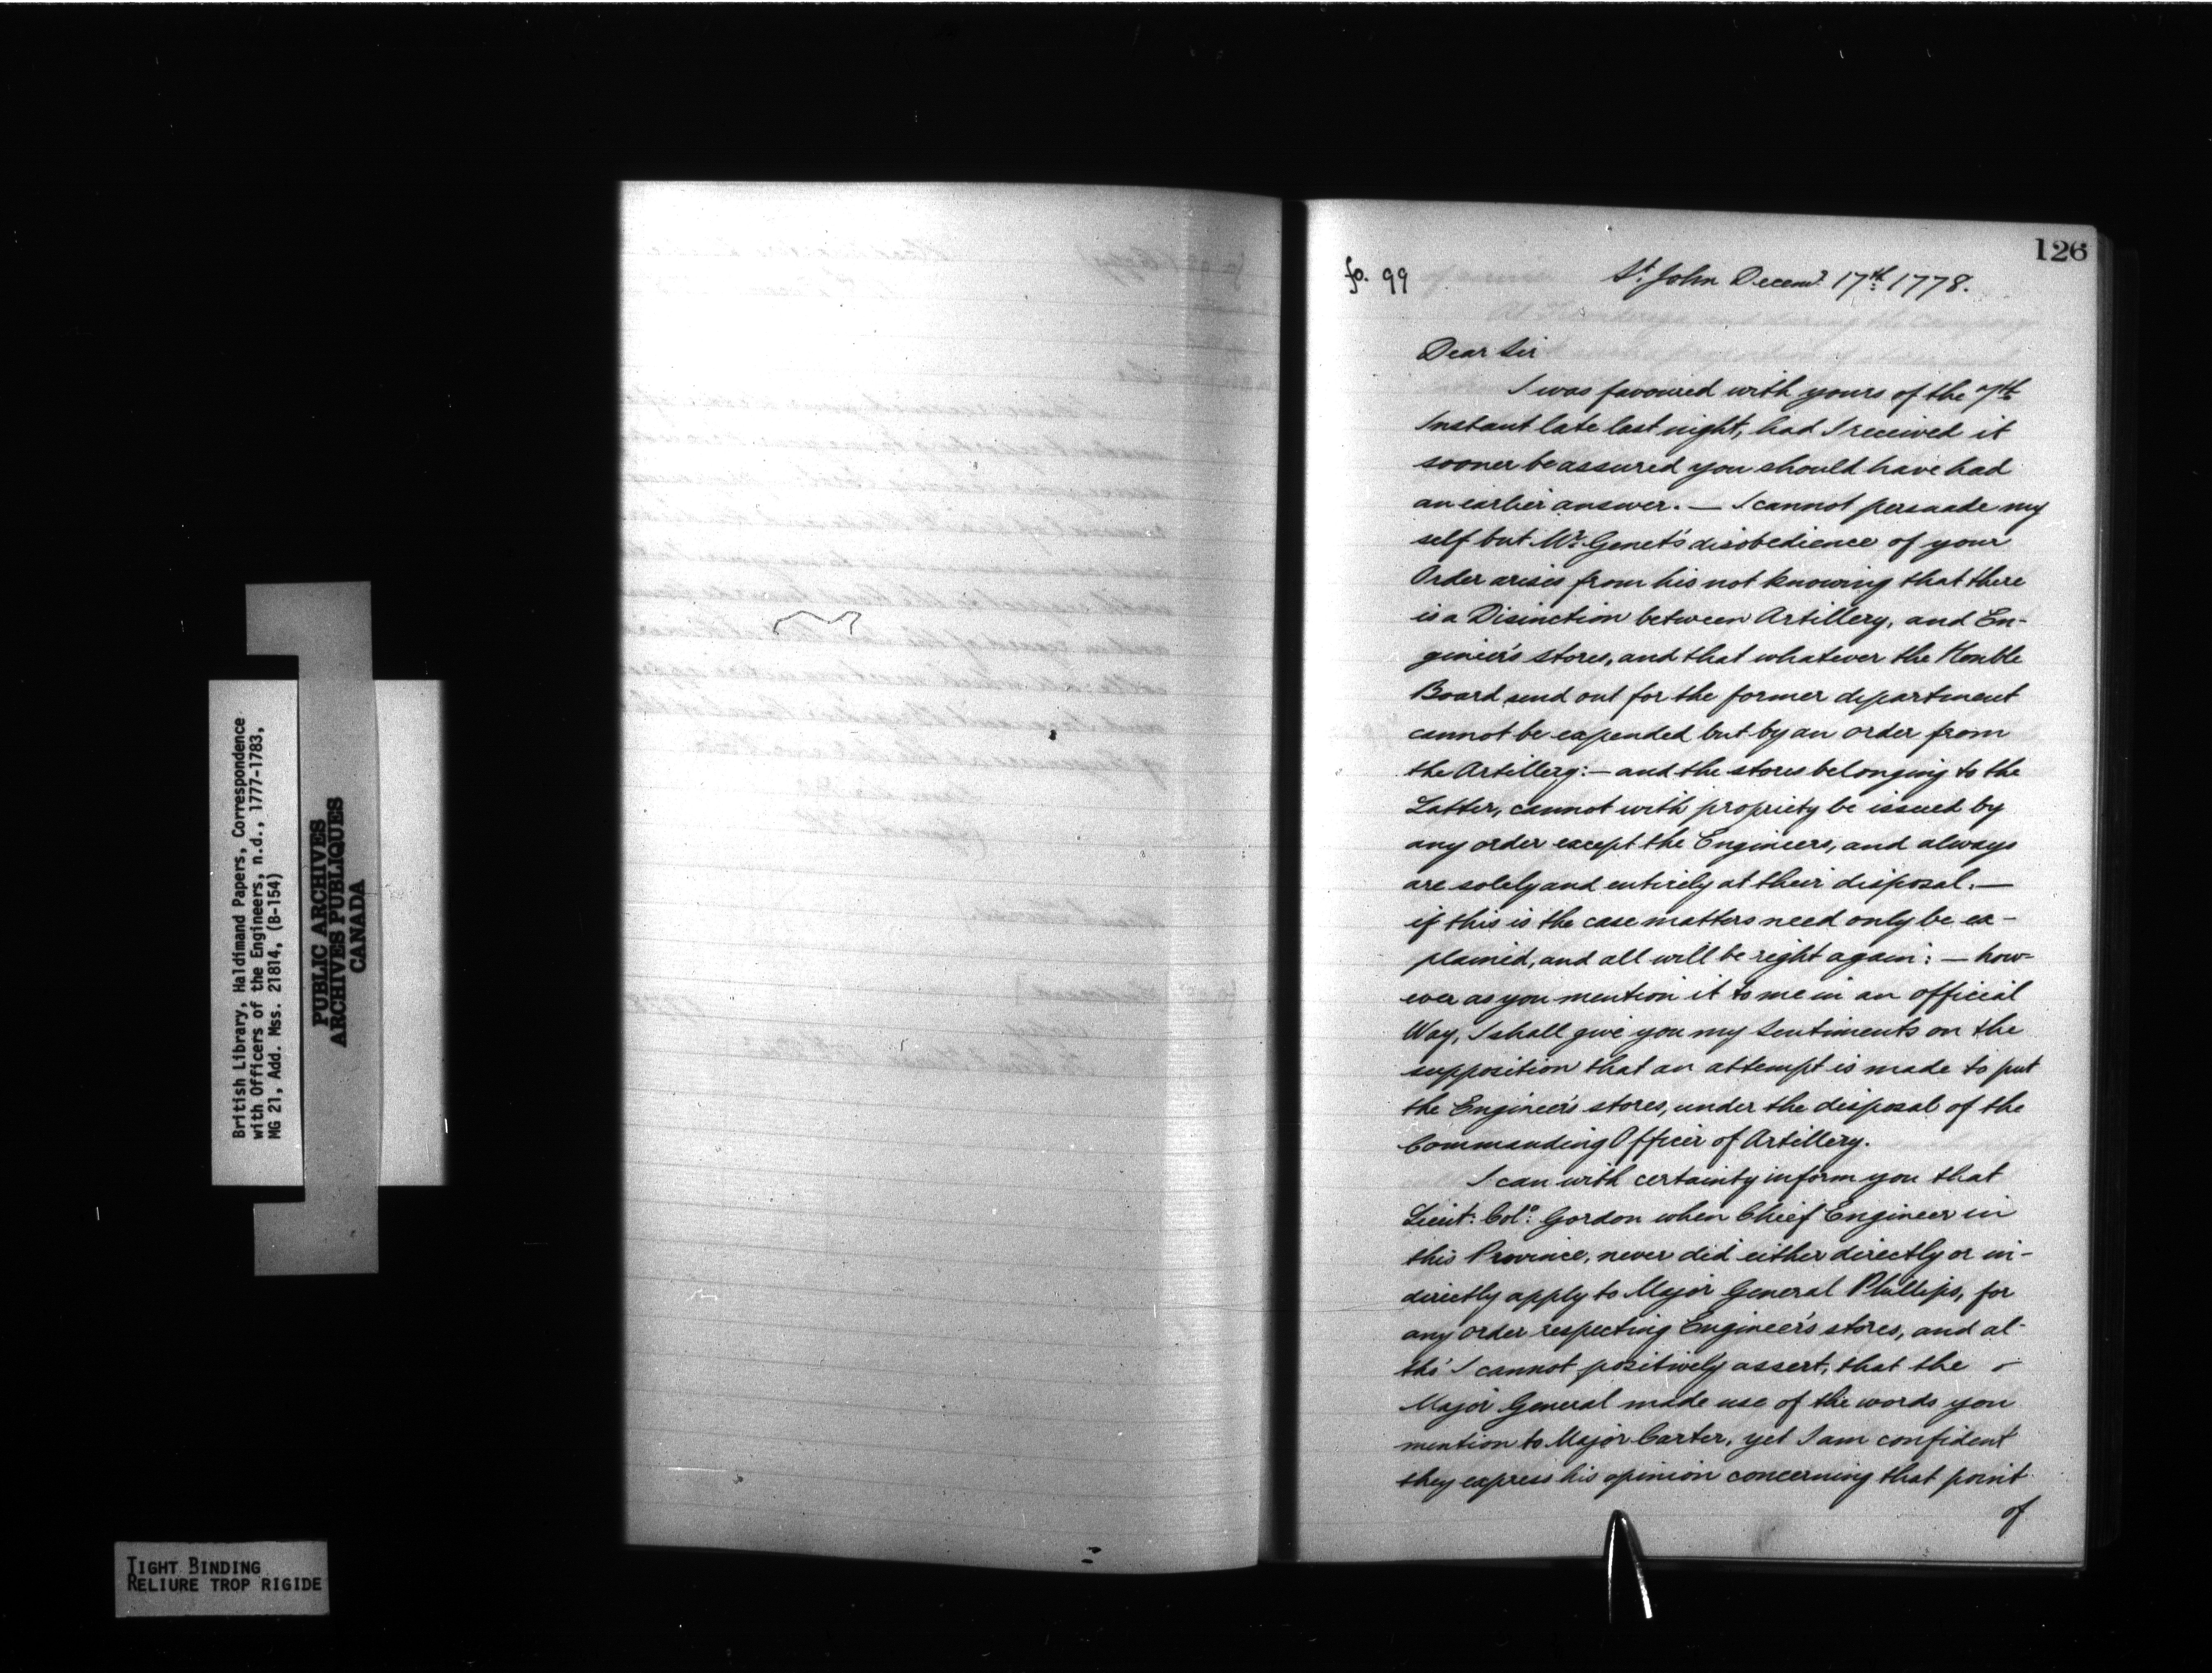 126
fo. 99
St. John Decemr. 17th 1778.
Dear Sir
I was favoured with yours of the 7th
Instant late last night, had I received it
sooner be assured you should have had
an earlier answer. — I cannot persuade my
self but Mr. Genet's disobedience of your
Order arises from his not knowing that there
is a Disinction between Artillery, and En-
gineer's stores, and that whatever the Honble
Board send out for the former department
cannot be expended but by an order from
the Artillery: — and the stores belonging to the
Latter, cannot with propriety be issued by
any order except the Engineers, and always
are solely and entirely at their disposal. —
if this is the case matters need only be ex-
plained, and all will be right again: — how-
ever as you mention it to me in an official
Way, I shall give you my Sentiments on the
supposition that an attempt is made to put
the Engineer's stores, under the disposal of the
Commanding Officer of Artillery.
I can with certainty inform you that
Lieut. Colo. Gordon when Chief Engineer in
this Province, never did either directly or in-
directly apply to Major General Phillips, for
any order respecting Engineer's stores, and al-
tho' I cannot positively assert, that the
Major General made use of the words you
mention to Major Carter, yet I am confident
they express his opinion concerning that point
of
British Library, Haldimand Papers, Correspondence
with Officers of the Engineers, n.d., 1777-1783,
MG 21, Add. Mss. 21814, (B-154)
PUBLIC ARCHIVES
ARCHIVES PUBLIQUES
CANADA
TIGHT BINDING
RELIURE TROP RIGIDE